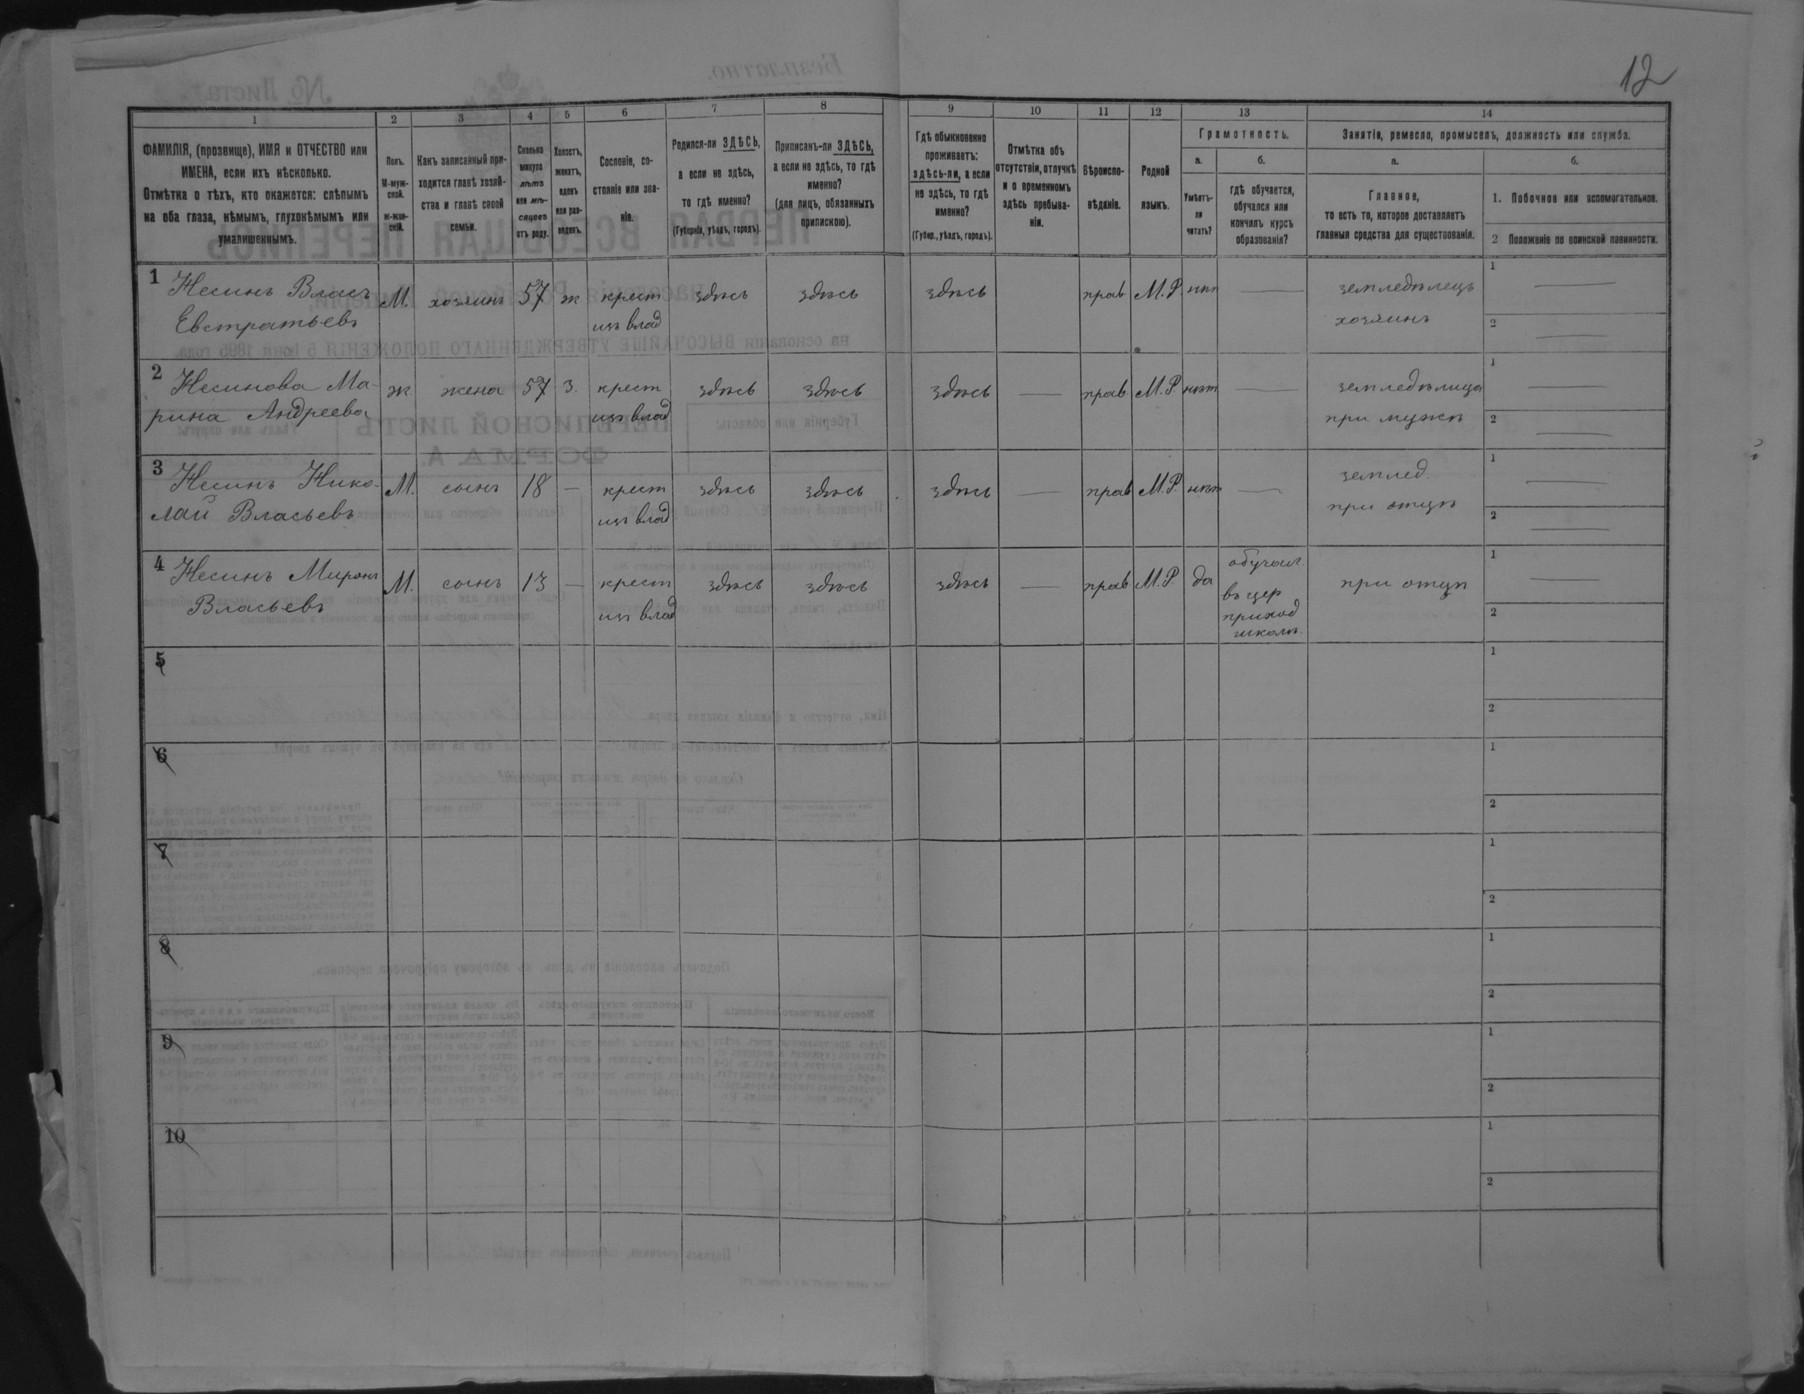 12
1
2
3
4
5
6
7
8
9
10
11
12
13
14
ФАМИЛІЯ, (прозвище), ИМЯ и ОТЧЕСТВО или
ИМЕНА, если ихъ нѣсколько.
Отмѣтка о тѣхъ, кто окажется: слѣпымъ
на оба глаза, нѣмымъ, глухонѣмымъ или
умалишеннымъ.
Полъ.
М-муж-
ской.
ж-жен-
скій.
Какъ записанный при-
ходится главѣ хозяй-
ства и главѣ своей
семьи.
Сколько
минуло
лѣтъ
или мѣ-
сяцевъ
отъ роду.
Холостъ,
женатъ,
вдовъ
или раз-
веденъ.
Сословіе, со-
стояніе или зва-
ніе.
Родился-ли ЗДѢСЬ,
а если не здѣсь,
то гдѣ именно?
(Губернія, уѣздъ, городъ).
Приписанъ-ли ЗДѢСЬ,
а если не здѣсь, то гдѣ
именно?
(для лицъ, обязанныхъ
припискою).
Гдѣ обыкновенно
проживаетъ:
здѣсь-ли, а если
не здѣсь, то гдѣ
именно?
(Губер., уѣздъ, городъ).
Отмѣтка объ
отсутствіи, отлучкѣ
и о временномъ
здѣсь пребыва-
ніи.
Вѣроиспо-
вѣданіе.
Родной
языкъ.
Грамотность.
а.
б.
Умѣетъ-
ли
читать?
гдѣ обучается,
обучался или
кончилъ курсъ
образованія?
Занятіе, ремесло, промыселъ, должность или служба.
а.
б.
Главное,
то есть то, которое доставляетъ
главныя средства для существованія.
1. Побочное или вспомогательное.
2 Положеніе по воинской повинности.
1
Несинъ Власъ
Евстратьевъ
М.
хозяинъ
57
ж
крест
изъ влад
здѣсь
здѣсь
здѣсь
прав
М.Р.
нѣт
земледѣлецъ
хозяинъ
1
2
2
Несинова Ма-
рина Андреева
ж
жена
57
з.
крест
изъ влад
здѣсь
здѣсь
здѣсь
—
прав
М.Р
нѣт
земледѣлица
при мужѣ
1
2
3
Несинъ Нико-
лай Власьевъ
М.
сынъ
18
—
крест
изъ влад
здѣсь
здѣсь
здѣсь
—
прав
М.Р.
нѣт
землед.
при отцѣ
1
2
4
Несинъ Миронъ
Власьевъ
М.
сынъ
13
—
крест
изъ влад
здѣсь
здѣсь
здѣсь
—
прав
М.Р
да
обучал.
въ цер
приход
школѣ.
при отцѣ
1
2
5
1
2
6
1
2
7
1
2
8
1
2
9
1
2
10
1
2